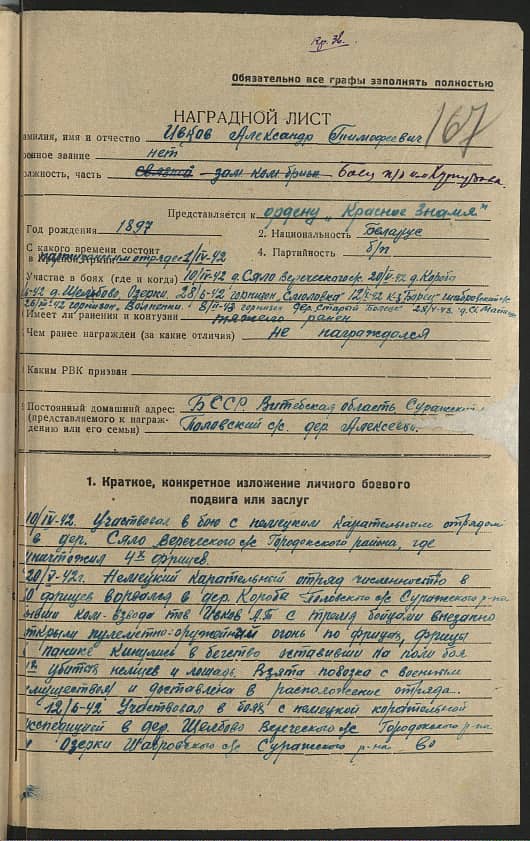 Кр. Зв.
Обязательно все графы заполнять полностью
НАГРАДНОЙ ЛИСТ
167
амилия, имя и отчество Ивков Александр Тимофеевич
оенное звание нет
олжность, часть зам ком бриг. Боец п/о им
Представляется к ордену „Красное Знамя"
Год рождения 1897 2. Национальность Беларус
С какого времени состоит 4. Партийность б/п
в партизанском отряде 1/IV-42
Участие в боях (где и когда) 10/IV-42 д. Сяло Вереческого с/с. 20/V-42 д. Короба
6-42 д. Щелбово, Озерки. 28/6-42 гарнизон
гарнизон, 8/IV-43 гарнизон дер. Старый
Имеет ли ранения и контузии тяжело ранен
Чем ранее награжден (за какие отличия) не награждался
Каким РВК призван
Постоянный домашний адрес: БССР. Витебская область Суражский
(представляемого к награж-
дению или его семьи) Половский с/с. дер. Алексеевы.
1. Краткое, конкретное изложение личного боевого
подвига или заслуг
10/IV-42. Участвовал в бою с немецким карательным отрядом
в дер. Сяло Вереческого с/с Городокского района, где
уничтожил 4х фрицев.
20/V-42г. Немецкий карательный отряд численностью в
0 фрицев ворвался в дер. Короба Половского с/с Суражского р-на
ком-взвода тов Ивков А.Т с тремя бойцами внезапно
ткрыли пулеметно-оружейный огонь по фрицам, фрицы
панике кинулися в бегство оставивши на поли боя
убитых немцев и лошадь. Взята повозка с военным
муществом и доставлена в расположение отряда.
12/6-42 Участвовал в боях с немецкой карательной
кспедицией в дер. Щелбово Вереческого с/с Городокского р-на
Озерки Шавровского с/с Суражского р-на. Во